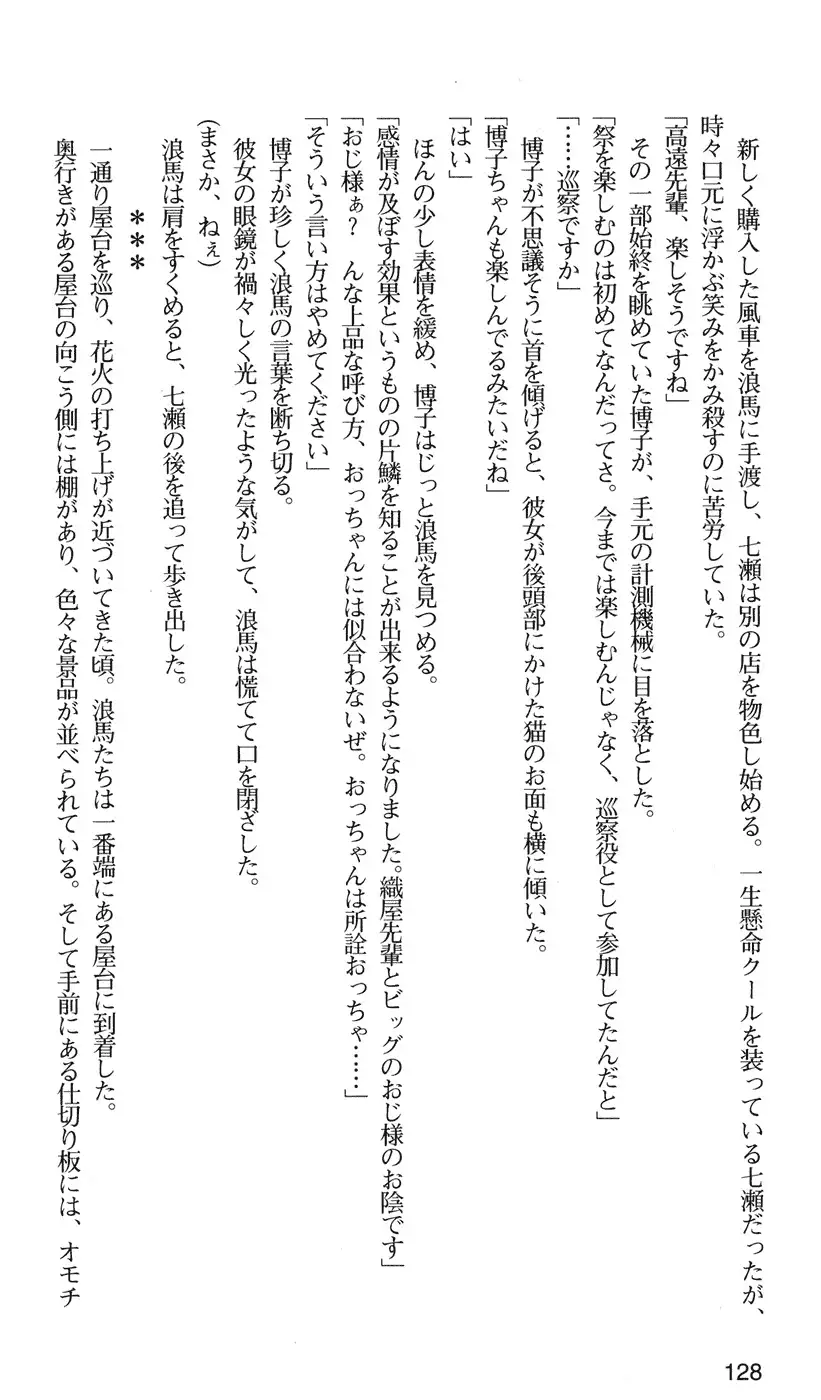 新しく購入した風車を浪馬に手渡し、七瀬は別の店を物色し始める。一生懸命クールを装っている七瀬だったが、
時々口元に浮かぶ笑みをかみ殺すのに苦労していた。
「高遠先輩、楽しそうですね」
その一部始終を眺めていた博子が、手元の計測機械に目を落とした。
「祭を楽しむのは初めてなんだってさ。今までは楽しむんじゃなく、巡察役として参加してたんだと」
「……巡察ですか」
博子が不思議そうに首を傾げると、彼女が後頭部にかけた猫のお面も横に傾いた。
「博子ちゃんも楽しんでるみたいだね」
「はい」
ほんの少し表情を緩め、博子はじっと浪馬を見つめる。
「感情が及ぼす効果というものの片鱗を知ることが出来るようになりました。織屋先輩とビッグのおじ様のお陰です」
「おじ様ぁ？　んな上品な呼び方、おっちゃんには似合わないぜ。おっちゃんは所詮おっちゃ……」
「そういう言い方はやめてください」
博子が珍しく浪馬の言葉を断ち切る。
彼女の眼鏡が禍々しく光ったような気がして、浪馬は慌てて口を閉ざした。
(まさか、ねぇ)
浪馬は肩をすくめると、七瀬の後を追って歩き出した。
＊＊＊
一通り屋台を巡り、花火の打ち上げが近づいてきた頃。浪馬たちは一番端にある屋台に到着した。
奥行きがある屋台の向こう側には棚があり、色々な景品が並べられている。そして手前にある仕切り板には、オモチ
128